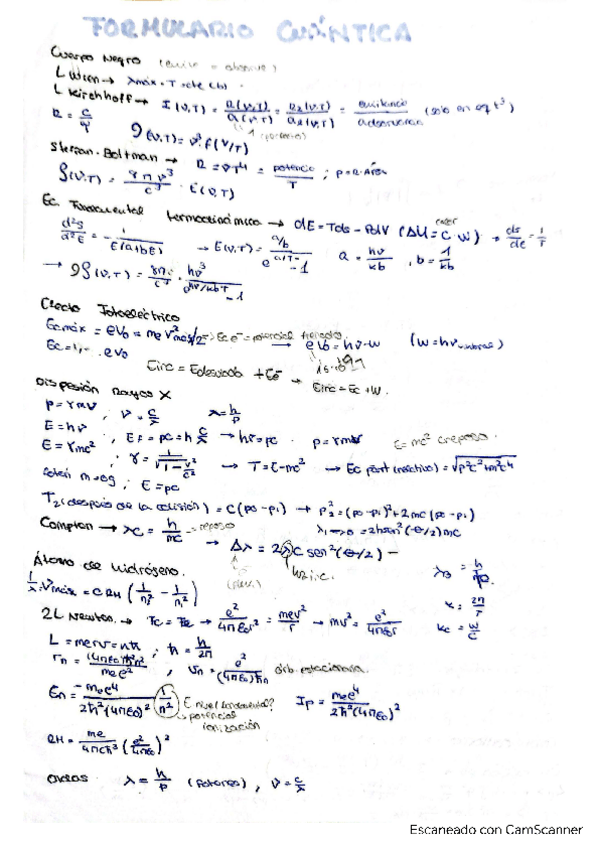 FORMULARIO CUÁNTICA
Cuerpo Negro (emite = absorve)
L Wien → λmáx · T = cte (b) .
L Kirchhoff → I(ν,T) = R(ν,T)/a(ν,T) = R₂(ν,T)/a₂(ν,T) = emitancia/absorvancia (solo en eq t³)
R = c/4 ρ(ν,T) = ν³·f(ν/T)
Stefan-Boltman → R = σT⁴ = potencia/T ; P = R·Área
ρ(ν,T) = 8πν³/c³ · E(ν,T)
Ec. Fundamental termodinámica → dE = Tds - PdV (ΔU = C W) → ds/de = 1/T
d²s/d²E = - 1/E(a+bE) → E(ν,T) = a/b / e^(a/T) - 1 a = hν/kb , b = 1/kb
→ ρ(ν,T) = 8π/c³ · hν³/e^(hν/kbT) - 1
Efecto Fotoeléctrico
Ecmáx = eV₀ = me v²máx/2 → Ec e⁻ = potencial frenado → eV₀ = hν - W (W = hν umbral)
Ec = 1,... eV₀
Einc = Edesviado + Ee⁻ → Einc = Ec + W.
Dispesión Rayos X
p = γmv ; ν = c/λ λ = h/p
E = hν ; Ef = pc = h c/λ → hν = pc . p = γmv E = mc² en reposo.
E = γmc² ; γ = 1/√(1 - v²/c²) → T = E - mc² → Ec part (inactivo) = √(p²c² + m²c⁴)
fotón m = 0g ; E = pc
T₂ (después de la colisión) = C(p₀ - p₁) → p₂² = (p₀ - p₁)² + 2mc(p₀ - p₁)
Compton → λc = h/mc → reposo λ₁ - λ₀ = 2h sen²(θ/2) mc
→ Δλ = 2λc sen²(θ/2) -
Átomo de hidrógeno.
1/λ · νmáx = C RH (1/n² - 1/n²) λB = h/p
k = 2π/T
2L Newton → Fc = Fe → e²/4πε₀r² = mev²/r → mv² = e²/4πε₀r kc = w/c
L = merv = nħ ; ħ = h/2π
rn = (4πε₀)ħ²n²/mee² , vn = e²/(4πε₀)ħn orb. estacionaria
En = - mee⁴/2ħ²(4πε₀)² · 1/n² E nivel fundamental? Ip = mee⁴/2ħ²(4πε₀)²
→ potencial
ionización
RH = me/4πcħ³ (e²/4πε₀)²
ondas λ = h/p (fotones) , ν = c/λ
Escaneado con CamScanner